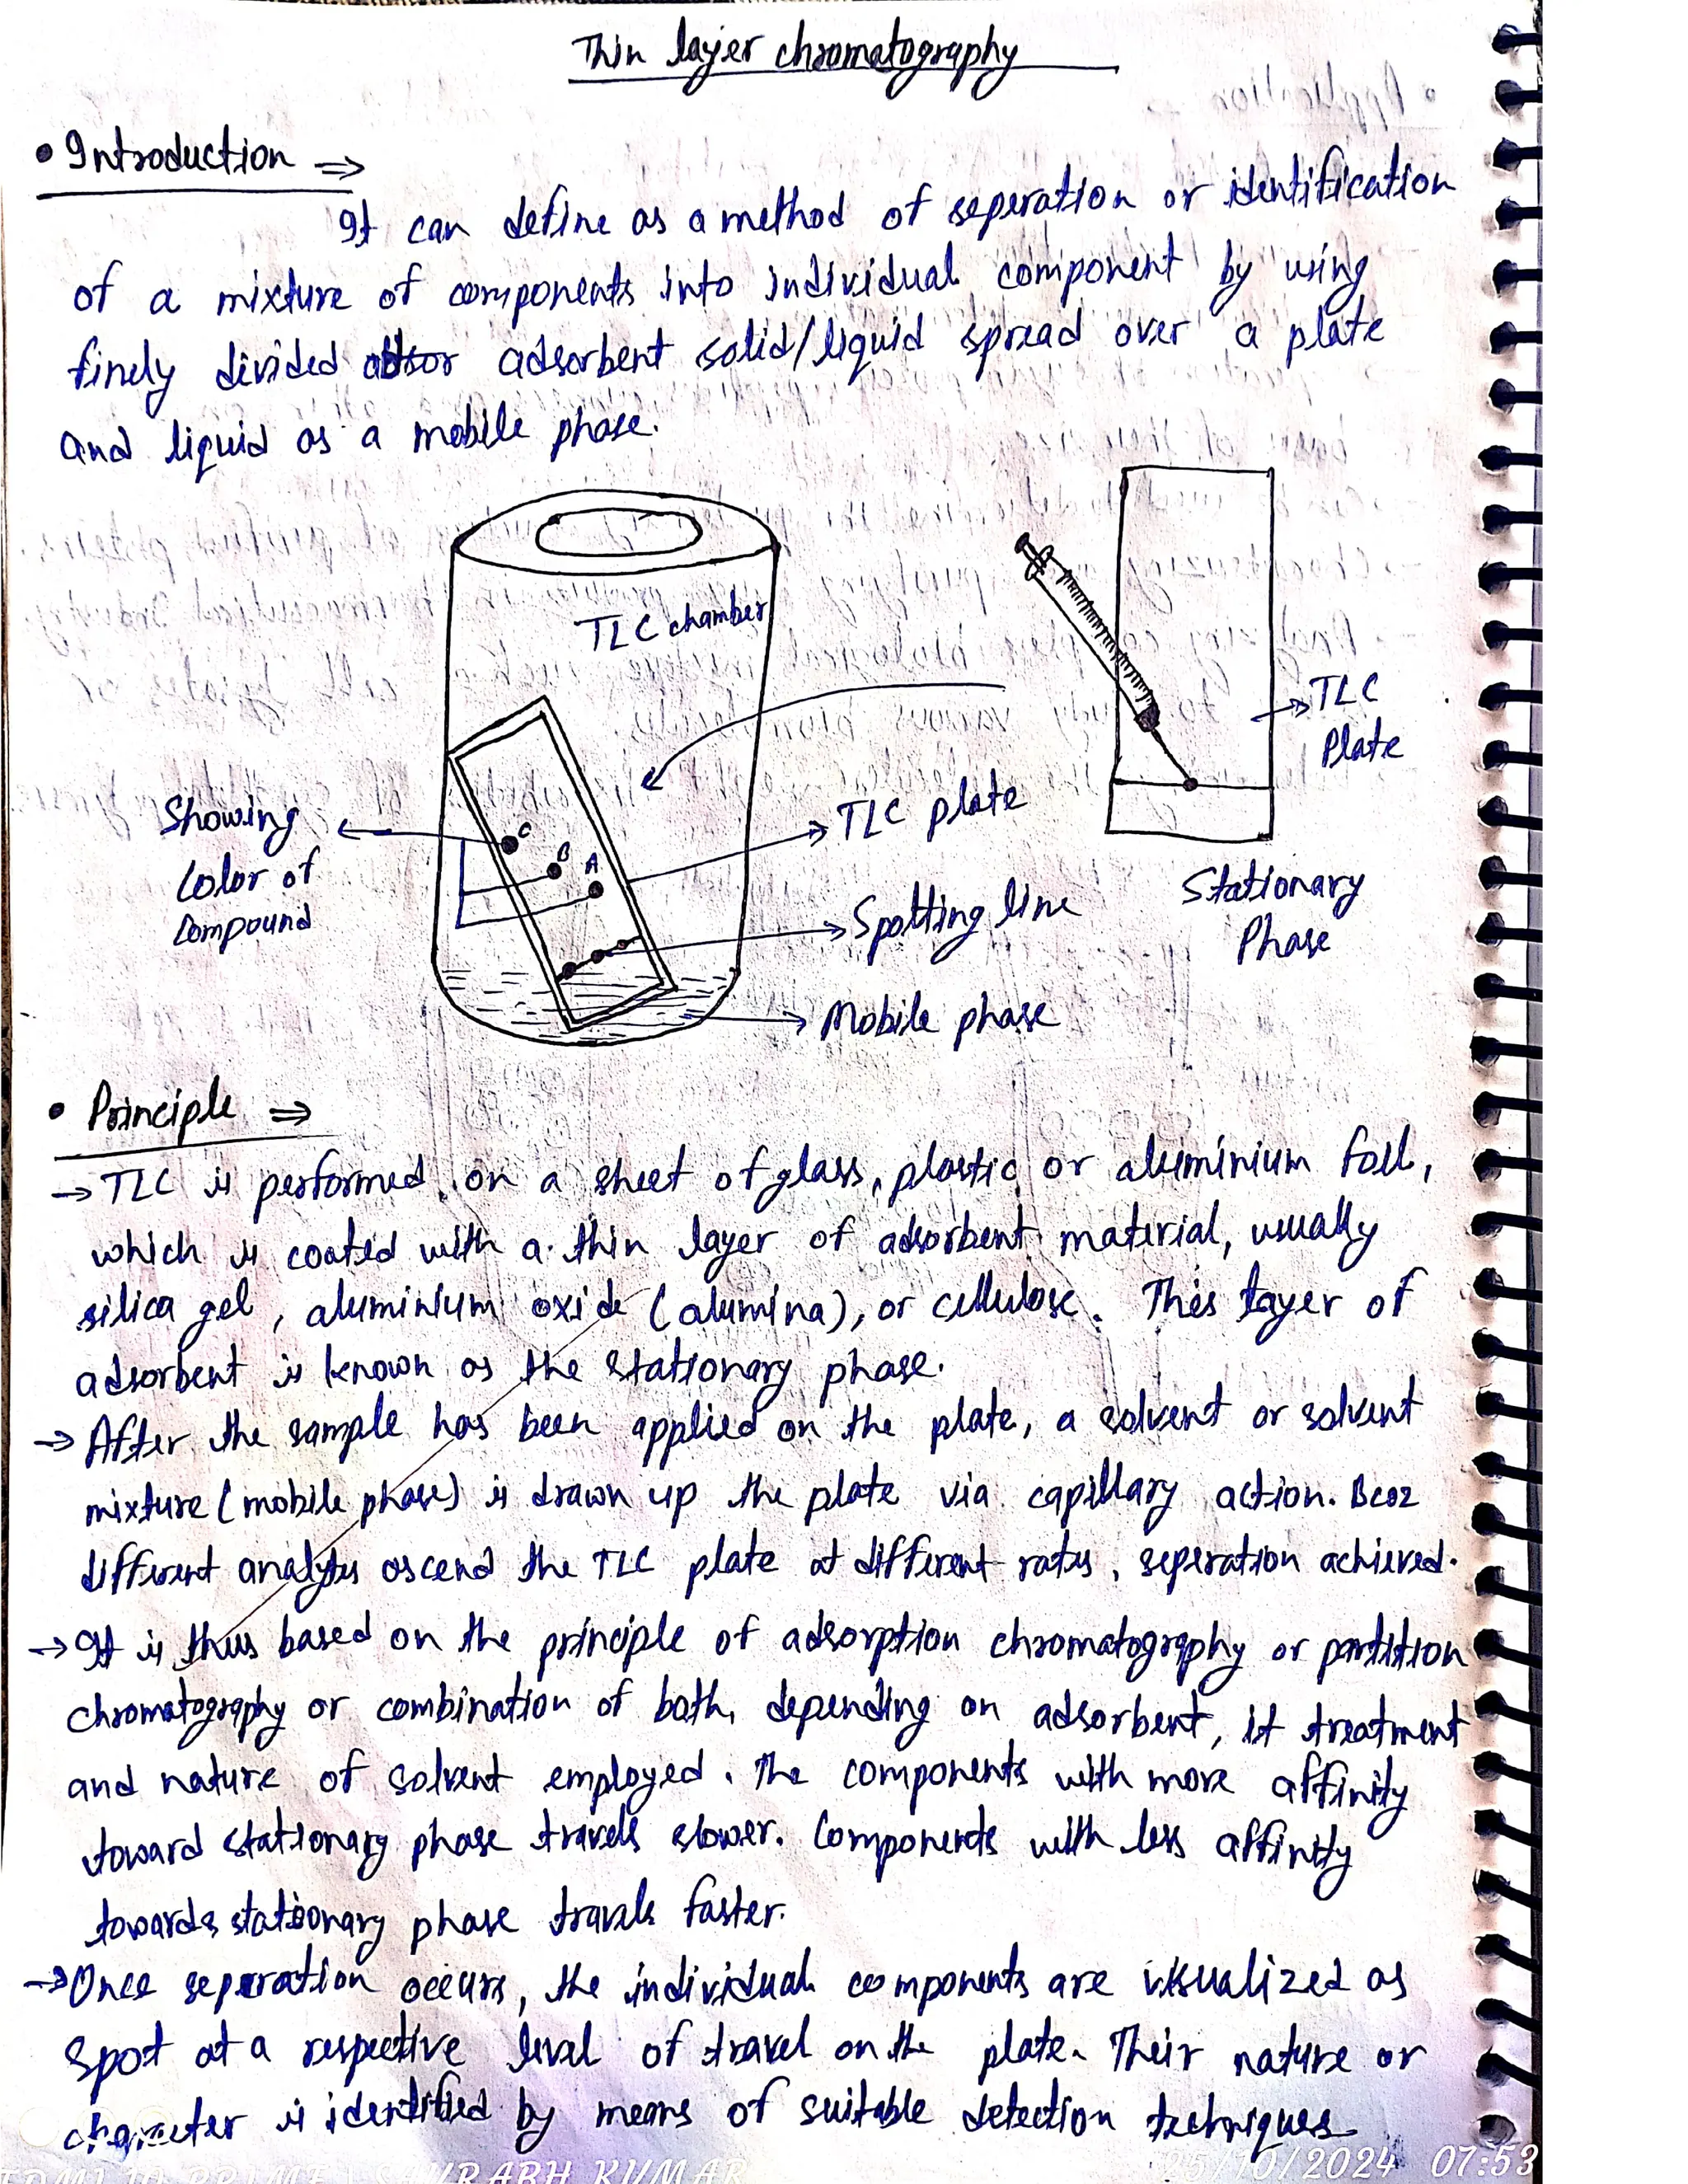 Thin layer chromatography
• Introduction ⇒
It can define as a method of seperation or identification
of a mixture of components into individual component by using
finely divided adsorbent solid/liquid spread over a plate
and liquid as a mobile phase.
TLC chamber
TLC
Plate
Showing
Color of
Compound
C
B
A
TLC plate
Spotting line
Mobile phase
Stationary
Phase
• Principle ⇒
→ TLC is performed on a sheet of glass, plastic or aluminium foil,
which is coated with a thin layer of adsorbent material, usually
silica gel, aluminium oxide (alumina), or cellulose. This layer of
adsorbent is known as the stationary phase.
→ After the sample has been applied on the plate, a solvent or solvent
mixture (mobile phase) is drawn up the plate via capillary action. Bcoz
different analytes ascend the TLC plate at different rates, seperation achieved.
→ It is thus based on the principle of adsorption chromatography or partition
chromatography or combination of both, depending on adsorbent, it treatment
and nature of solvent employed. The components with more affinity
toward stationary phase travels slower. Components with less affinity
towards stationary phase travels faster.
→ Once seperation occurs, the individual components are visualized as
spot at a respective level of travel on the plate. Their nature or
character is identified by means of suitable detection techniques
REDMI 10 PRIME | SAURABH KUMAR
25/10/2024 07:53